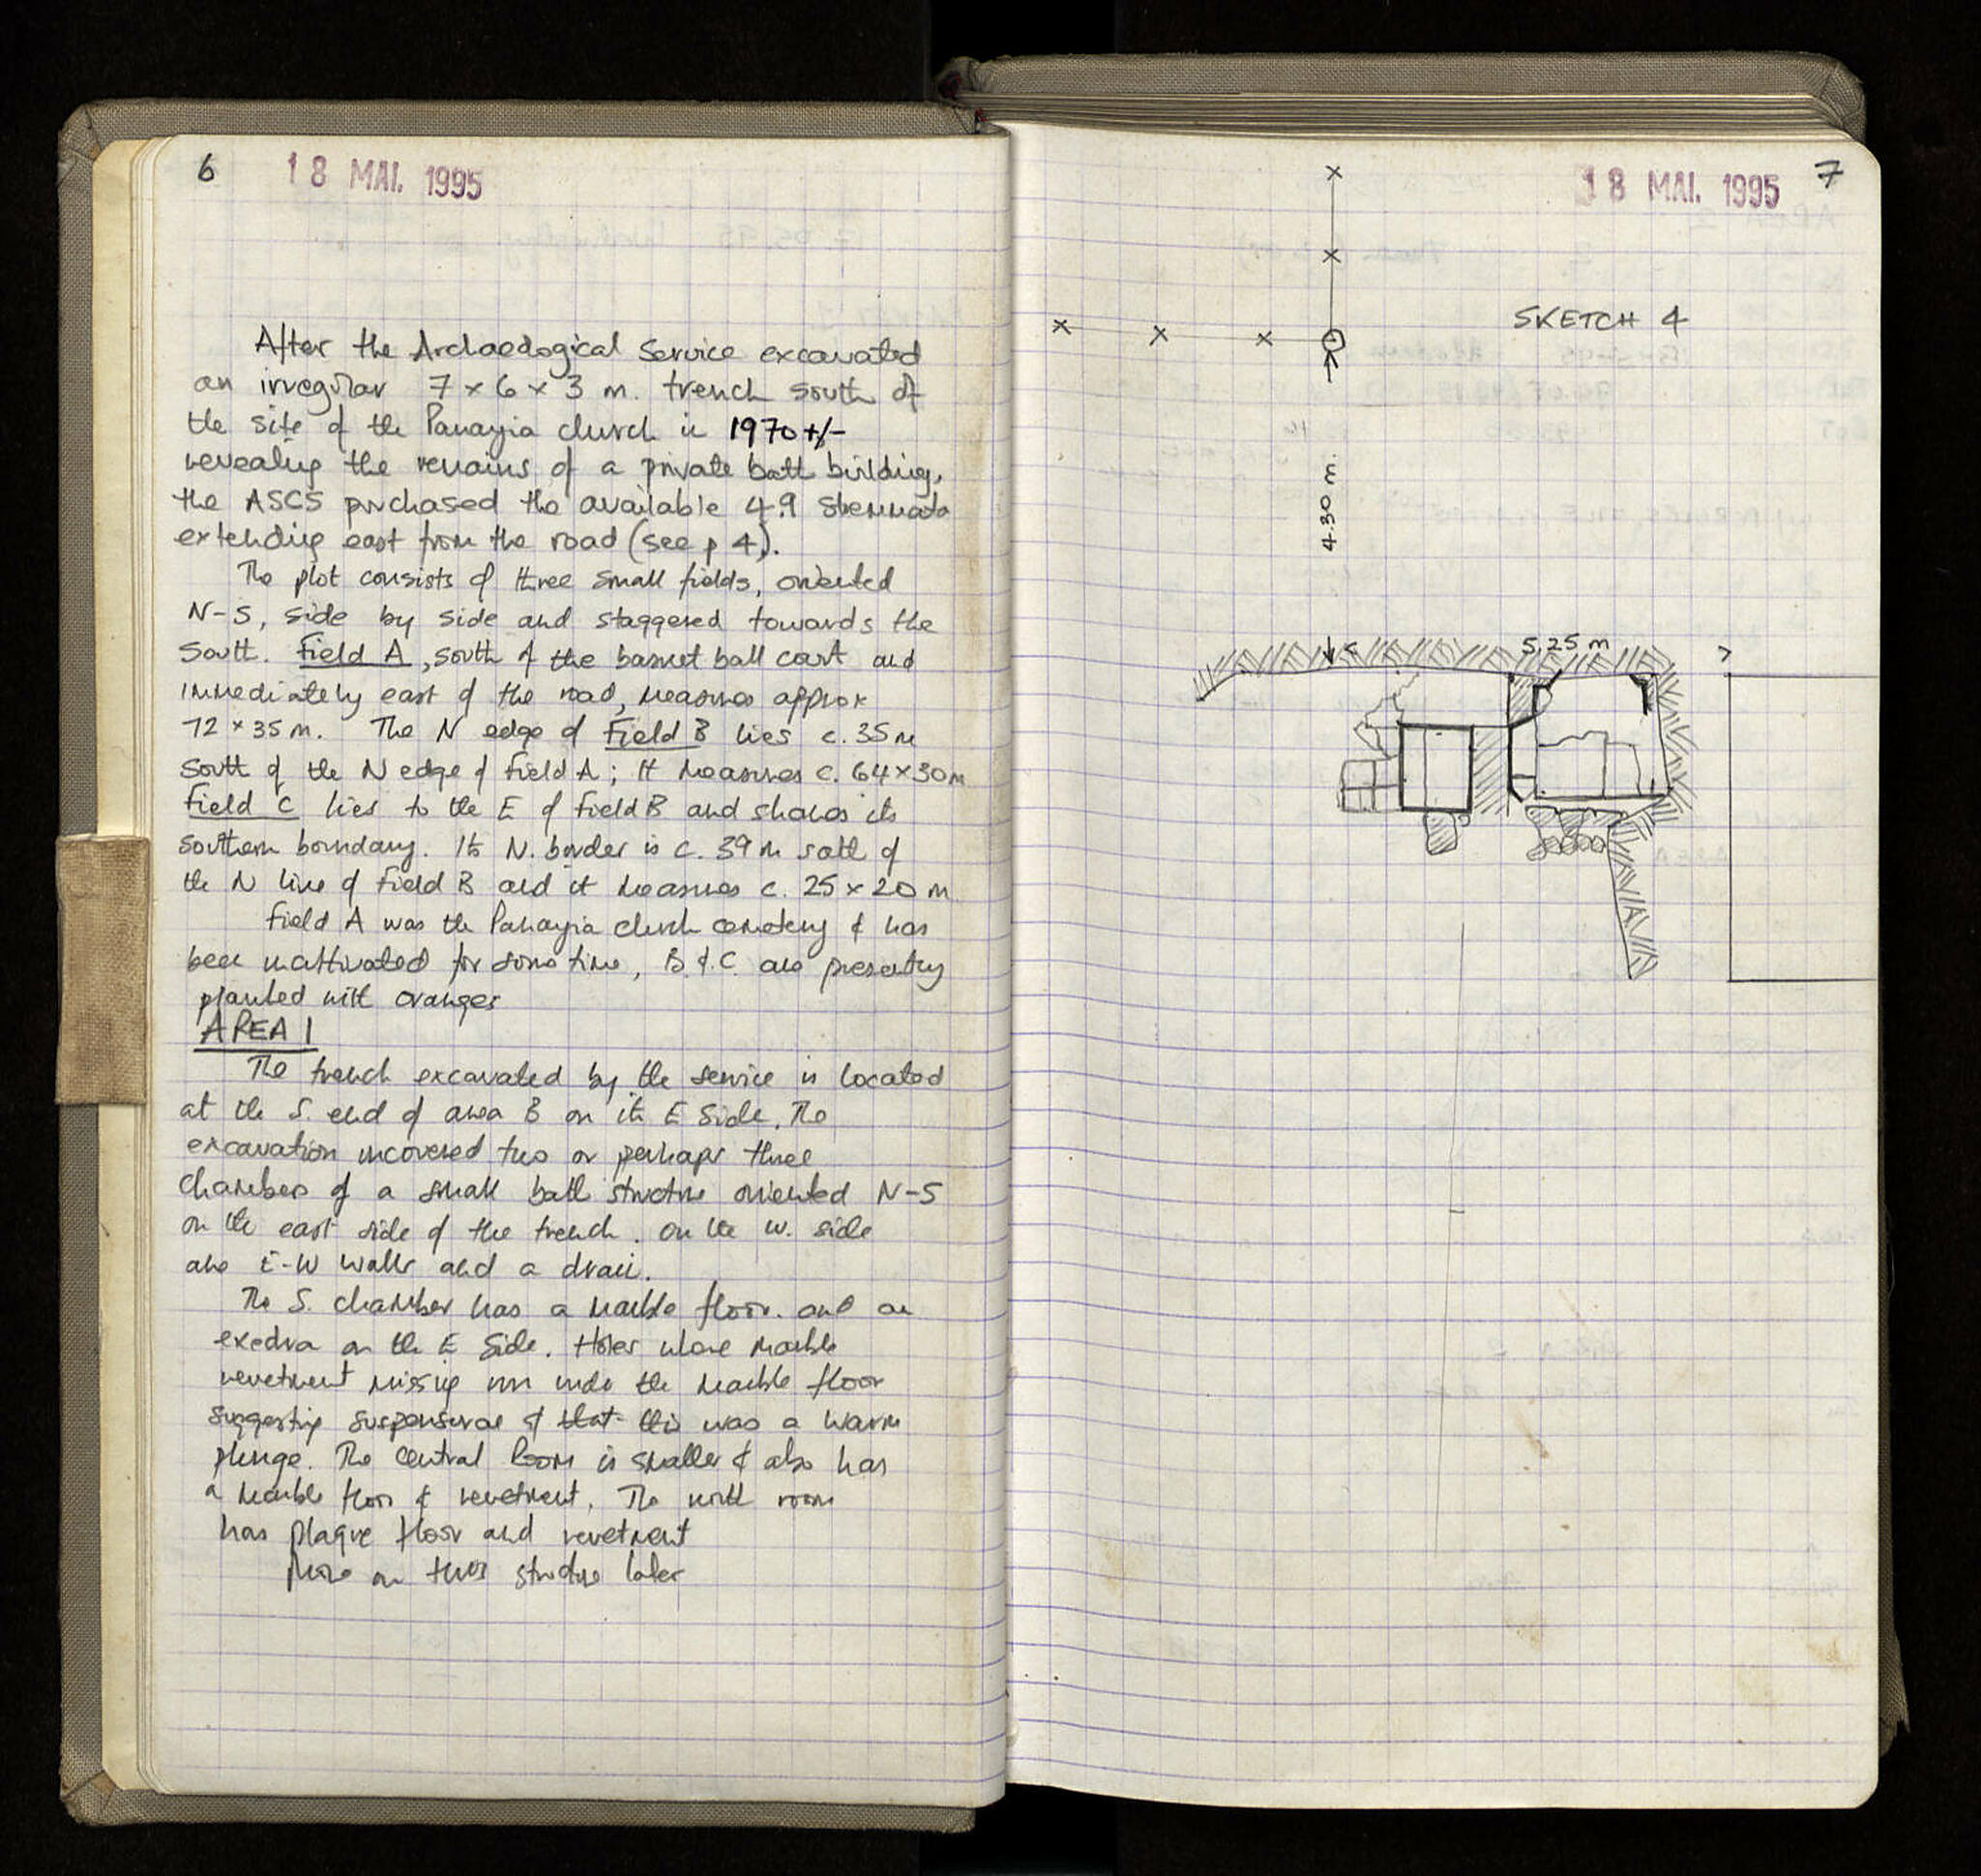 6
18 MAI. 1995
After the Archaeological Service excavated
an irregular 7 x 6 x 3 m. trench south of
the site of the Panayia church in 1970 +/-
revealing the remains of a private bath building,
the ASCS purchased the available 4.9 stremmata
extending east from the road (see p 4).
The plot consists of three small fields, oriented
N-S, side by side and staggered towards the
South. Field A, south of the basket ball court and
immediately east of the road, measures approx
72 x 35 m. The N edge of Field B lies c. 35 m
South of the N edge of Field A; It measures c. 64 x 30 m
Field C lies to the E of Field B and shares its
southern boundary. Its N. border is c. 39 m south of
the N line of Field B and it measures c. 25 x 20 m
Field A was the Panayia church cemetery & has
been uncultivated for some time, B & C are presently
planted with oranges
AREA 1
The trench excavated by the service is located
at the S. end of area B on its E Side. The
excavation uncovered two or perhaps three
chambers of a small bath structure oriented N-S
on the east side of the trench. On the W. side
are E-W walls and a drain.
The S. chamber has a marble floor. and an
exedra on the E Side. Holes where marble
revetment missing run under the marble floor
suggesting suspensurae & that this was a warm
plunge. The Central Room is smaller & also has
a marble floor & revetment. The north room
has plaque floor and revetment
More on this structure later
7
18 MAI. 1995
SKETCH 4
4.30 m.
5,25 m